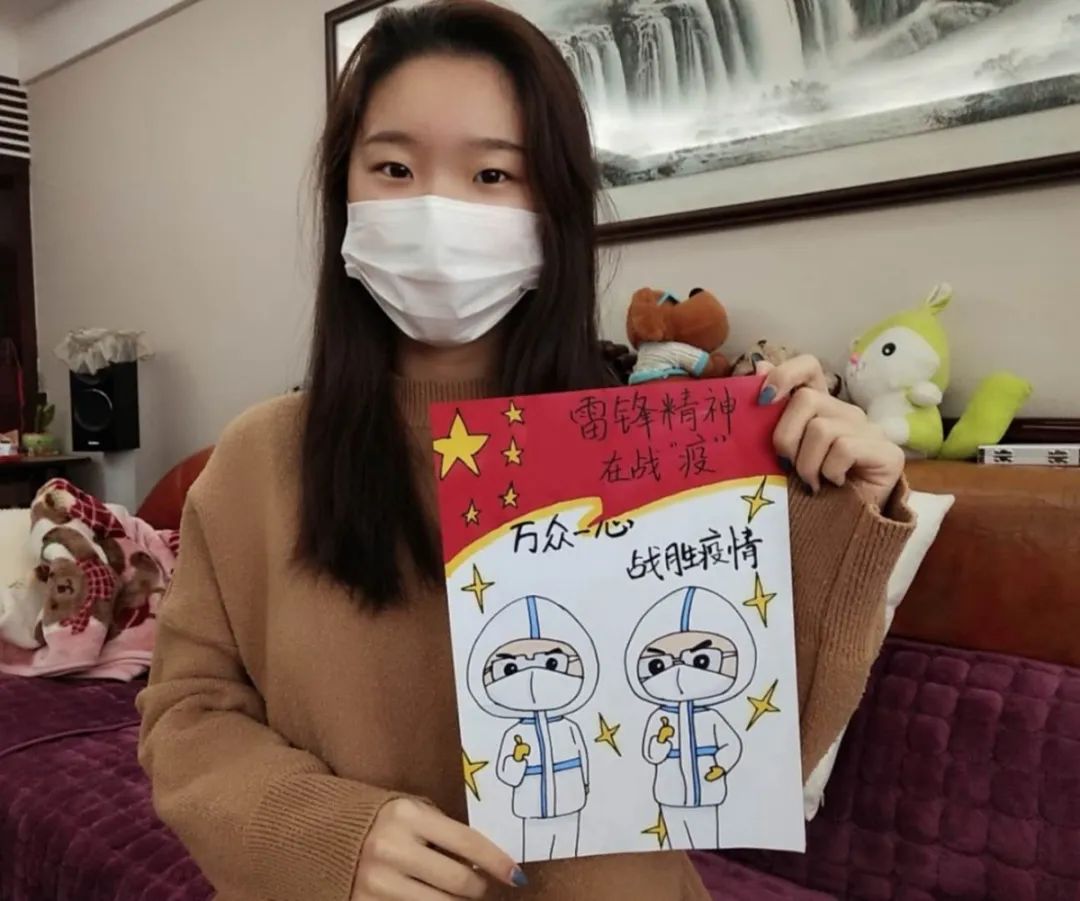 雷锋精神
在战“疫”
万众一心
战胜疫情